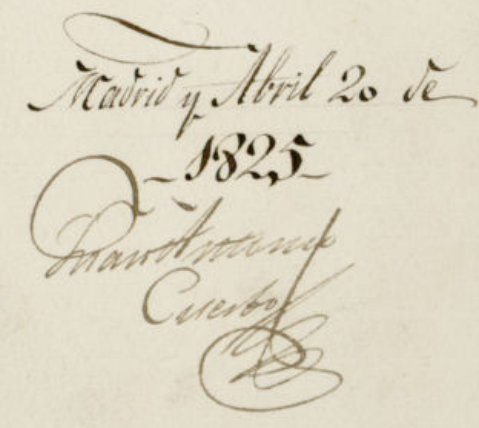 Madrid y Abril 20 de
1825
Juan Antonio
Cuerbo